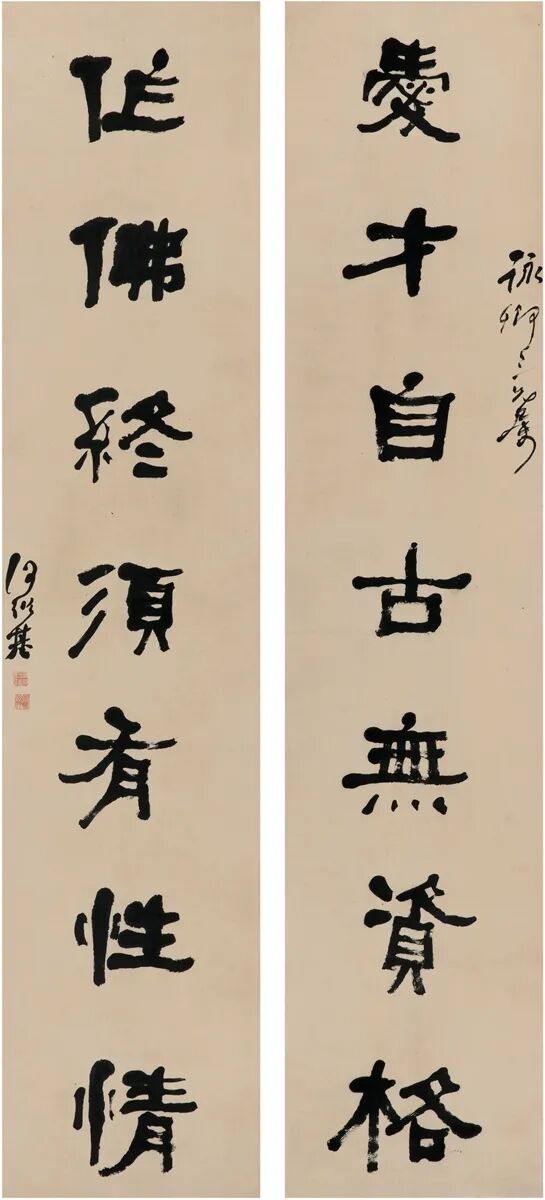 詠卿三兄屬
愛才自古無資格
作佛終須有性情
何紹基